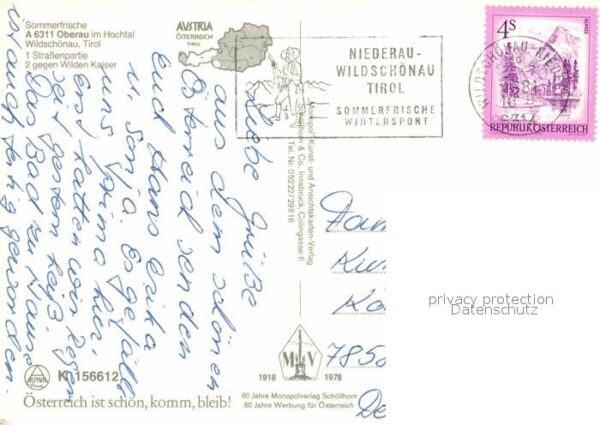 Sommerfrische
A 6311 Oberau im Hochtal
Wildschönau, Tirol
1 Straßenpartie
2 gegen Wilden Kaiser
AUSTRIA
ÖSTERREICH
TIROL
NIEDERAU-
WILDSCHÖNAU
TIROL
SOMMERFRISCHE
WINTERSPORT
WILDSCHÖNAU-NIEDERAU
4S
REPUBLIK ÖSTERREICH
Liebe Grüße
aus dem schönen
Österreich senden
euch Hans Erika
u. Sonja. Es gefällt
uns prima hier,
erst hatten wir Regen
seit gestern heiß.
Das Bad zu Hause
ist auch fertig geworden.
Monopol Kunst- und Ansichtskarten-Verlag
Schöllhorn & Co., Innsbruck, Colingasse 6
Tel. Nr. 05222/29816
Fam
785
privacy protection
Datenschutz
K 156612
MV
1918 1978
Österreich ist schön, komm, bleib!
60 Jahre Monopolverlag Schöllhorn
60 Jahre Werbung für Österreich